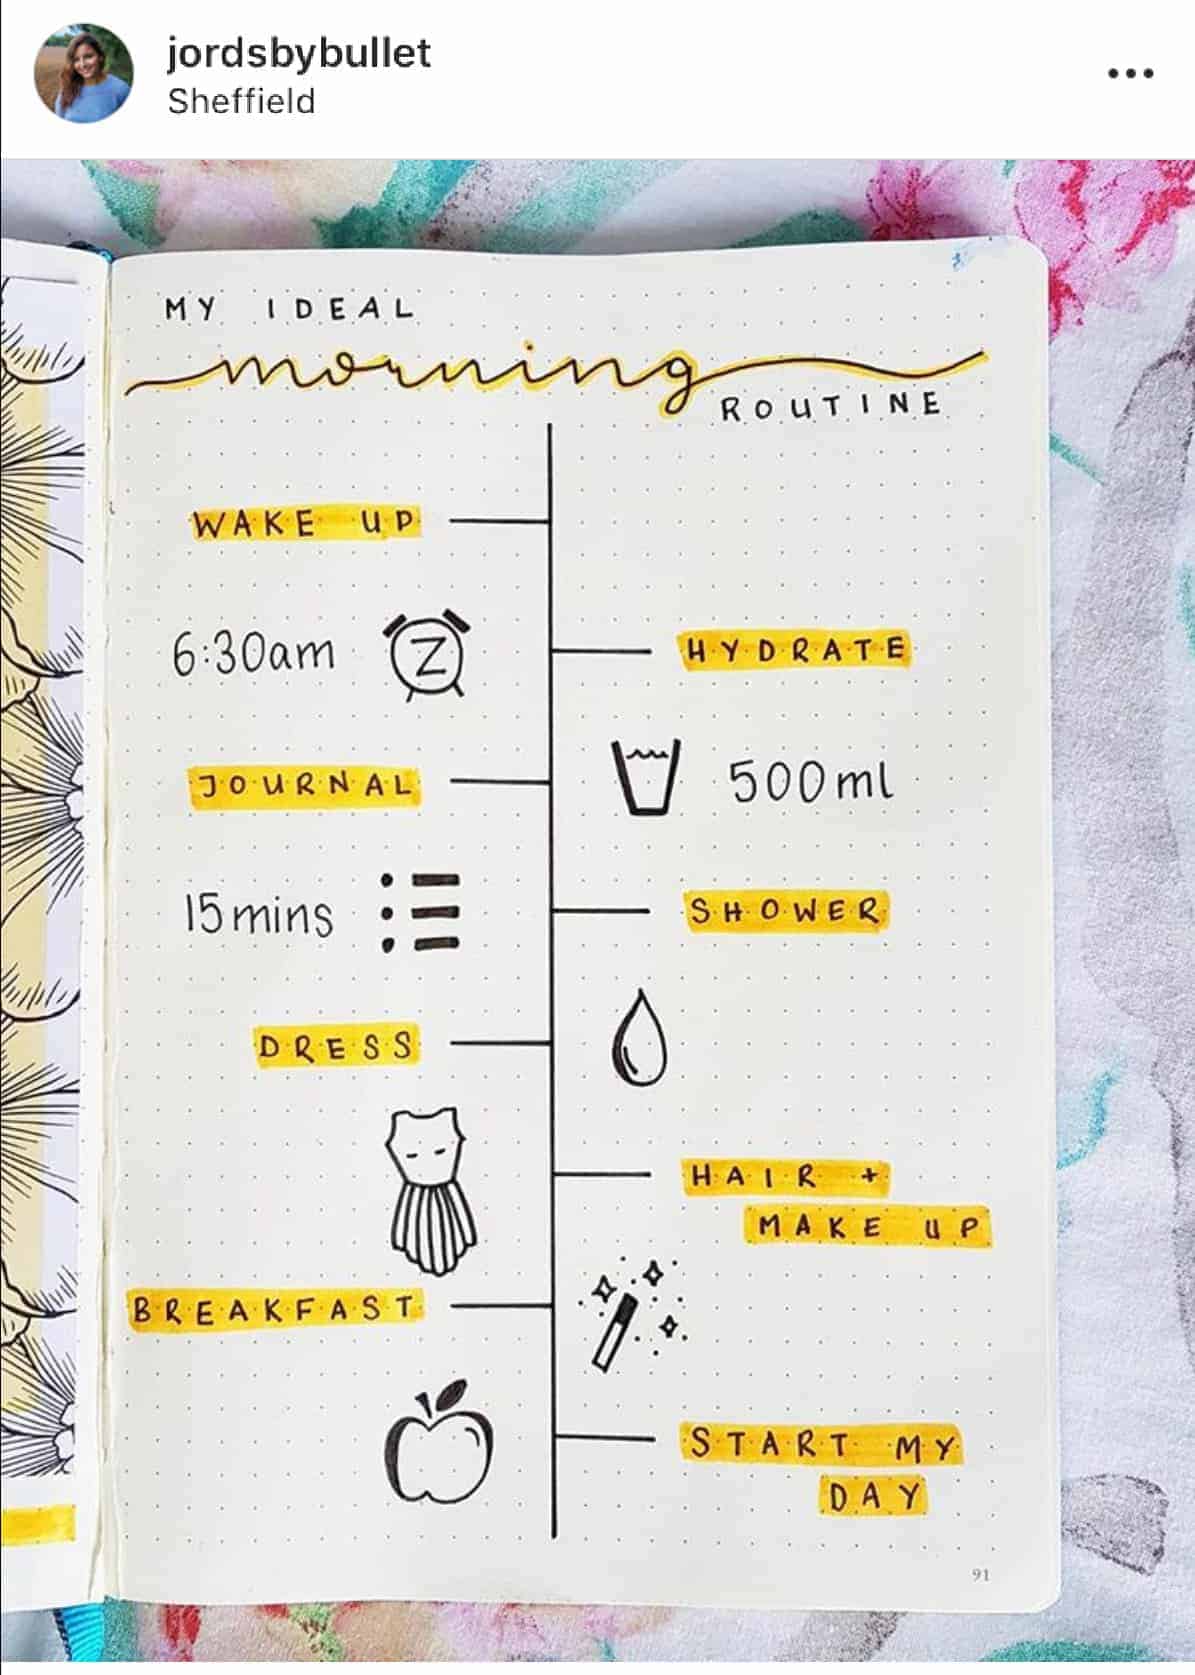 jordsbybullet
Sheffield
MY IDEAL
morning
ROUTINE
WAKE UP
6:30am
Z
HYDRATE
500ml
JOURNAL
15mins
SHOWER
DRESS
HAIR +
MAKE UP
BREAKFAST
START MY
DAY
91